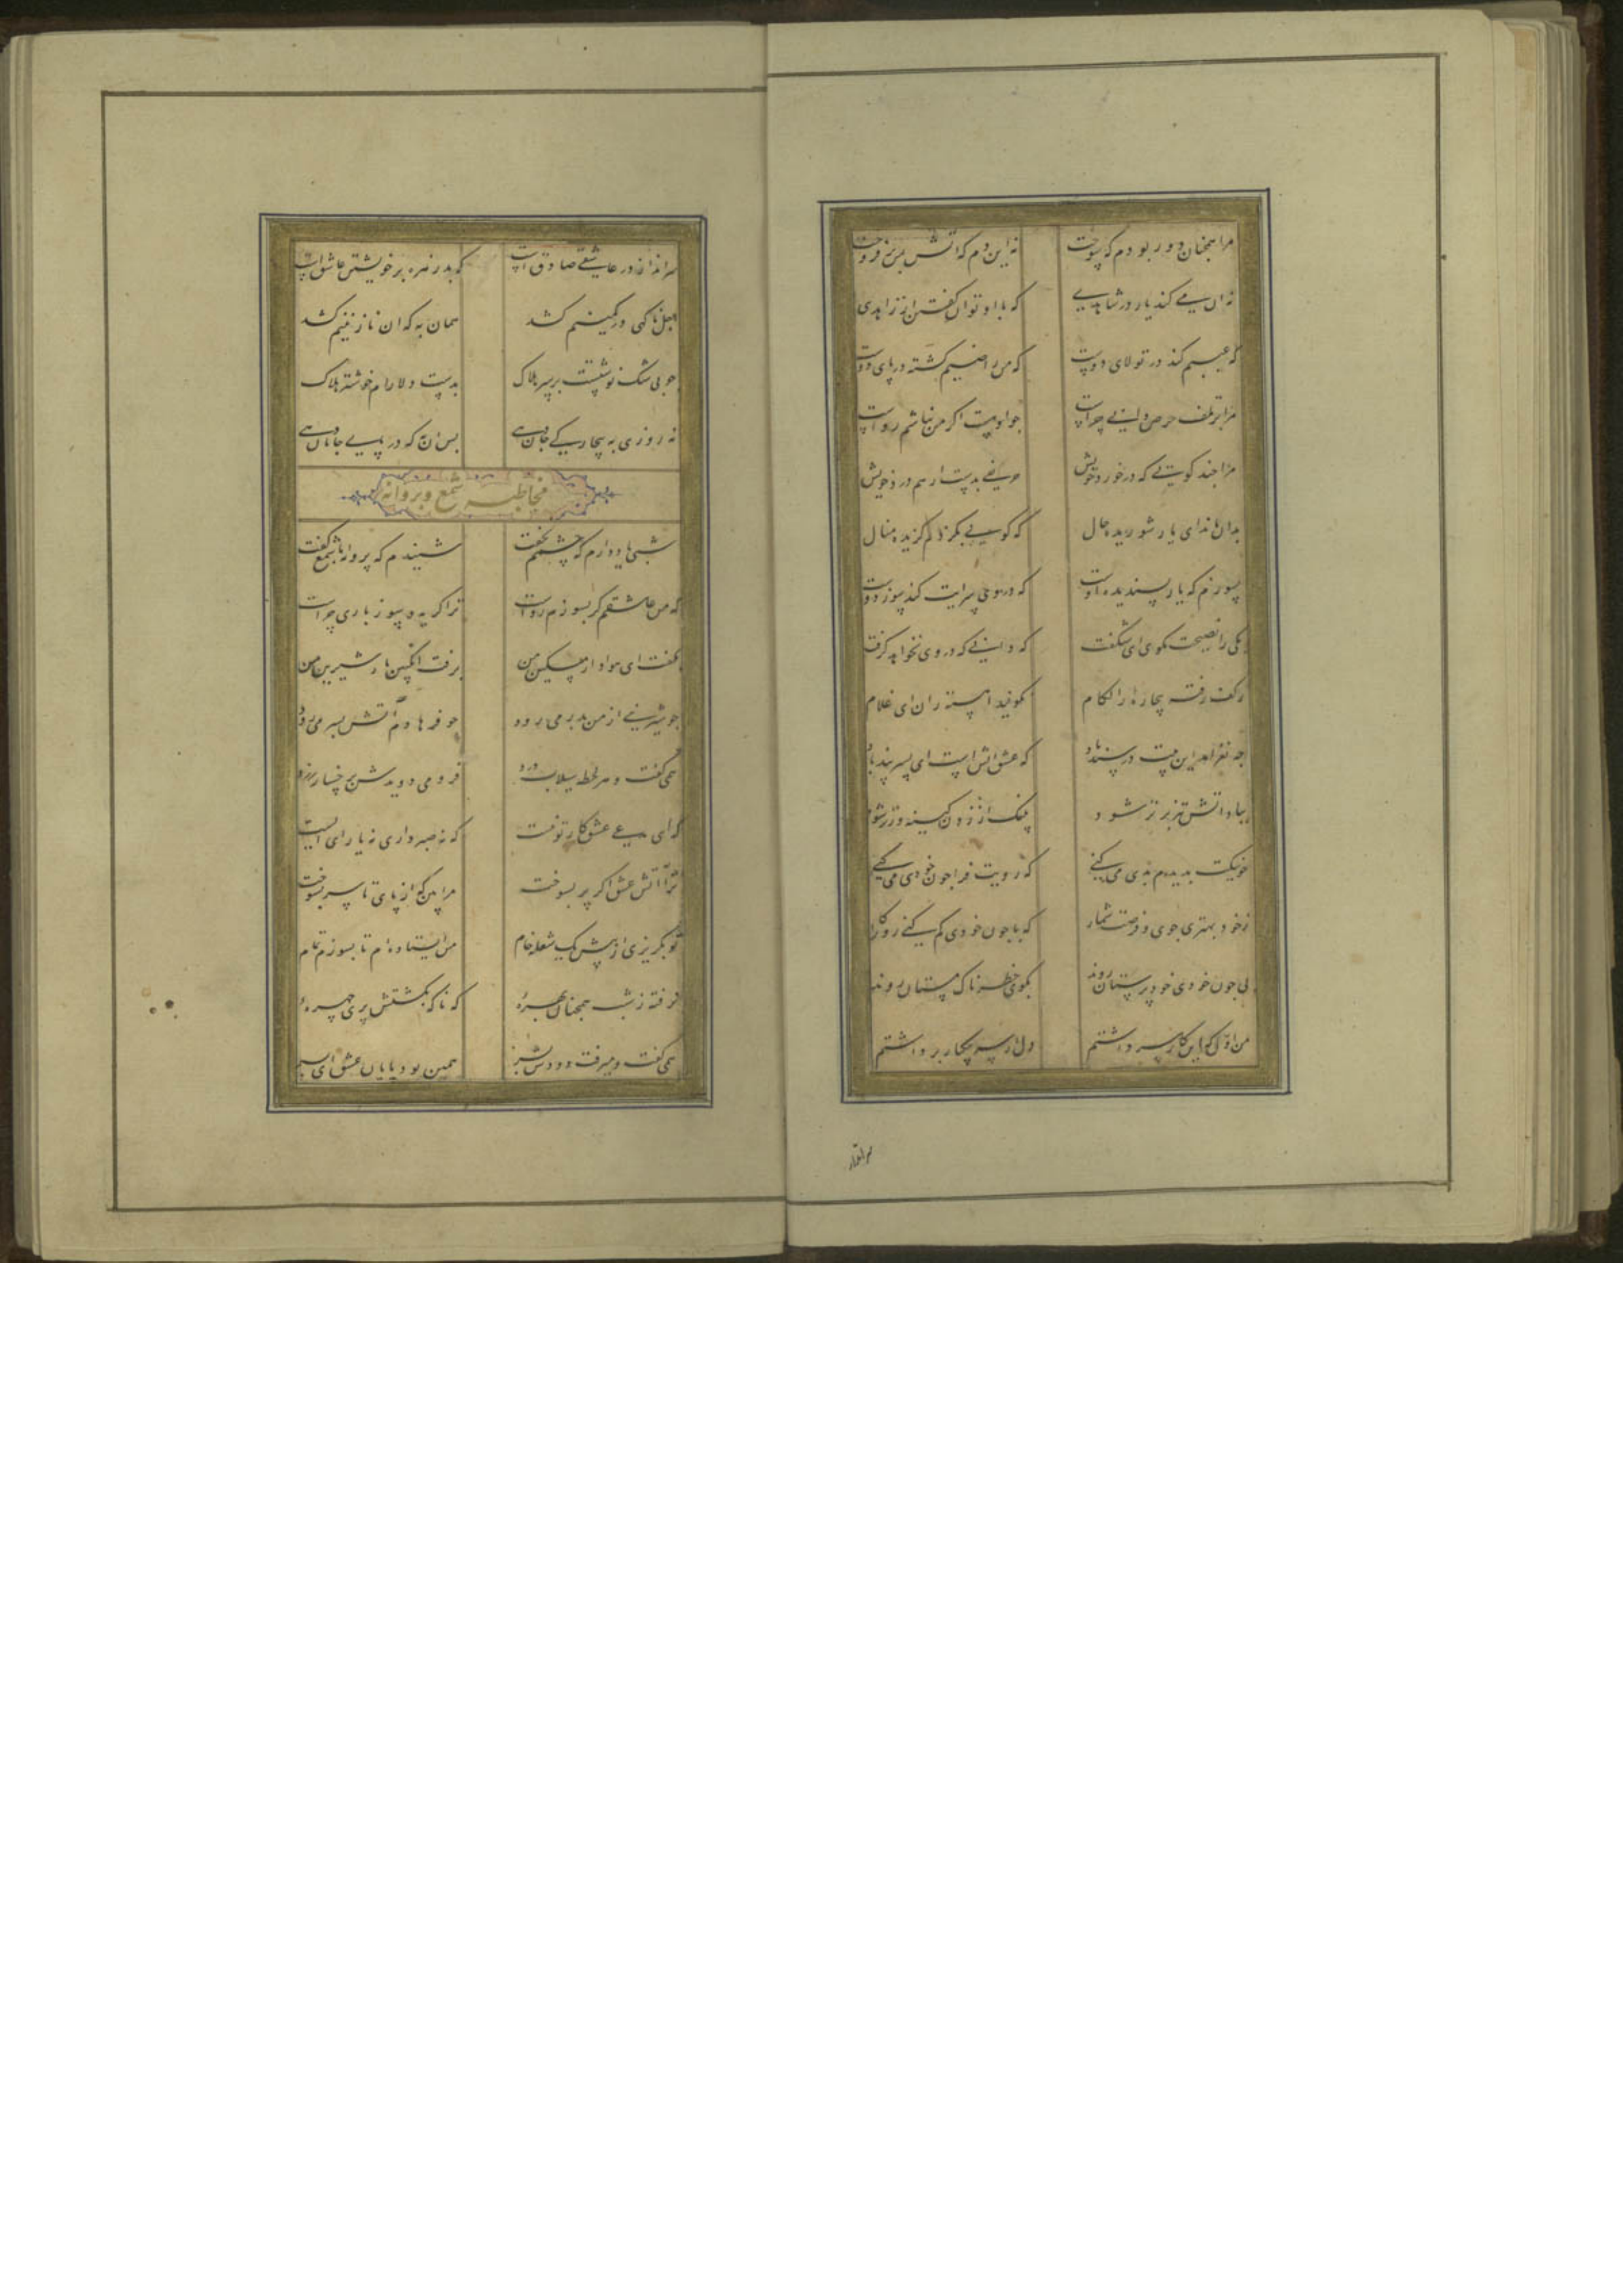 مرا همچنان دور بودم که سوخت نه این دم که آتش بمن بر فروخت
نه آن می کند یار در شاهدی که با او توان گفتن از زاهدی
که عیبم کند در تولای دوست که من راضیم کشته در پای دوست
مرا بر تلف حرص دانی چراست جو او هست اگر من نباشم رواست
مرا جند گویی که در خورد خویش حریفی بدست ار هم درد خویش
بدان ماند ای یار شوریده حال که گویی بکژدم گزیده منال
بسوزم که یار پسندیده اوست که در وی سرایت کند سوز دوست
یکی را نصیحت مگوی ای شگفت که دانی که در وی نخواهد گرفت
ز کف رفته بیچاره را لگام نگویند آهسته ران ای غلام
جه نغز آمد این بیت در سندباد که عشق آتش است ای پسر پند باد
بباد آتش تیز برتر شود پلنگ از زدن کینه ورتر شود
جو نیکت بدیدم بدی می کنی که رویت فرا جون خودی می کنی
ز خود بهتری جوی و فرصت شمار که با جون خودی گم کنی روزگار
پی جون خودی خود پرستان روند بکوی خطرناک مستان روند
من اول که این کار سر داشتم دل از سر بیکبار برداشتم
سر انداز
سر انداز در عاشقی صادق است که بد زهره بر خویشتن عاشق است
اجل ناگهی در کمینم کشد همان به که آن نازنینم کشد
جو بی شک نوشتست بر سر هلاک بدست دلارام خوشتر هلاک
نه روزی به بیچارگی جان دهی بس آن به که در پای جانان دهی
مخاطبه شمع و پروانه
شبی یاد دارم که چشمم نخفت شنیدم که پروانه با شمع گفت
که من عاشقم گر بسوزم رواست ترا گریه و سوز باری چراست
بگفت ای هوادار مسکین من برفت انگبین یار شیرین من
جو شیرینی از من بدر می رود جو فرهادم آتش بسر می رود
همی گفت و هر لحظه سیلاب درد فرو می دویدش برخسار زرد
که ای مدعی عشق کار تو نیست که نه صبر داری نه یارای ایست
ترا آتش عشق اگر پر بسوخت مرا بین که از پای تا سر بسوخت
تو بگریزی از پیش یک شعله خام من استاده ام تا بسوزم تمام
نرفته ز شب همچنان بهره که ناگه بکشتش پری چهره
همی گفت و میرفت دودش بسر همین بود پایان عشق ای پسر